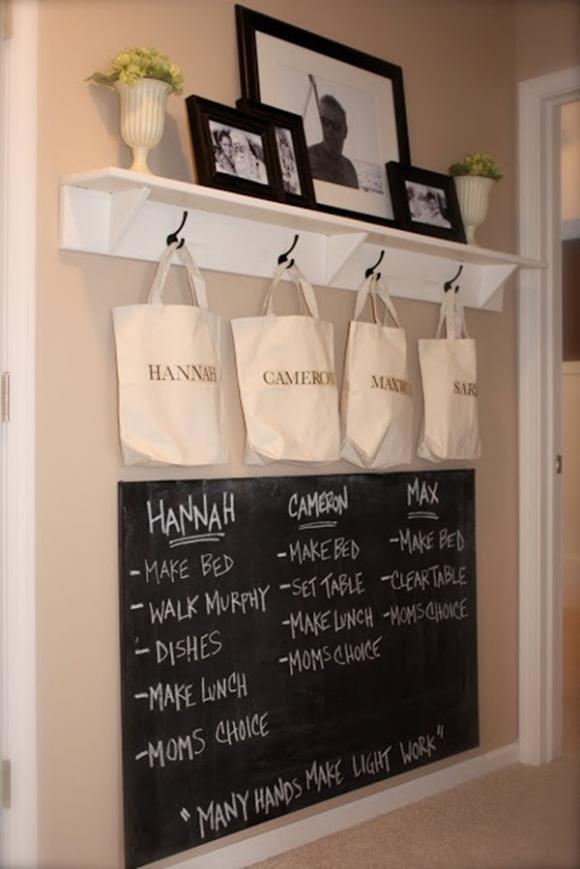 HANNAH
CAMERON
SARA
HANNAH
- MAKE BED
- WALK MURPHY
- DISHES
- MAKE LUNCH
- MOMS CHOICE
CAMERON
- MAKE BED
- SET TABLE
- MAKE LUNCH
- MOMS CHOICE
MAX
- MAKE BED
- CLEAR TABLE
- MOMS CHOICE
"MANY HANDS MAKE LIGHT WORK"